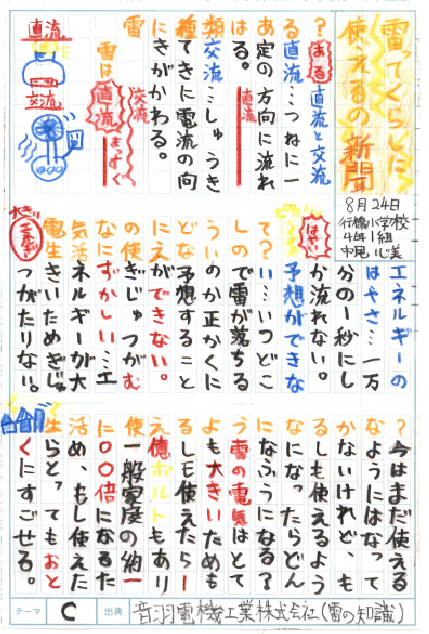 雷ってくらしに
使えるの新聞
8月24日
行橋小学校
4年1組
中尾心美
雷に種類はある?
ある
直流と交流
直流…つねに一
定の方向に流れ
る。
直流
交流…しゅうき
てきに電流の向
きがかわる。
交流
雷は直流
まっすぐ
直流
交流
電気なのにどうして?
生活に使えないの?
はやい
エネルギーの
はやさ…一万
分の一秒にし
か流れない。
予想ができな
い…いつどこ
で雷が落ちる
のか正かくに
予想すること
ができない。
ぎじゅつがむ
ずかしい…エ
ネルギーが大
きいためぎじゅ
つがたりない。
生活に使えるようになるかな?
今はまだ使える
ようにはなって
ないけれど、も
しも使えるよう
になったらどん
なぶつになる?
雷の電気はとて
も大きいためも
しも使えたら1
億ボルトもあり
一般家庭の約一
〇〇倍になるた
め、もし使えた
らとってもおと
くにすごせる。
テーマ C 出典 音羽電機工業株式会社(雷の知識)